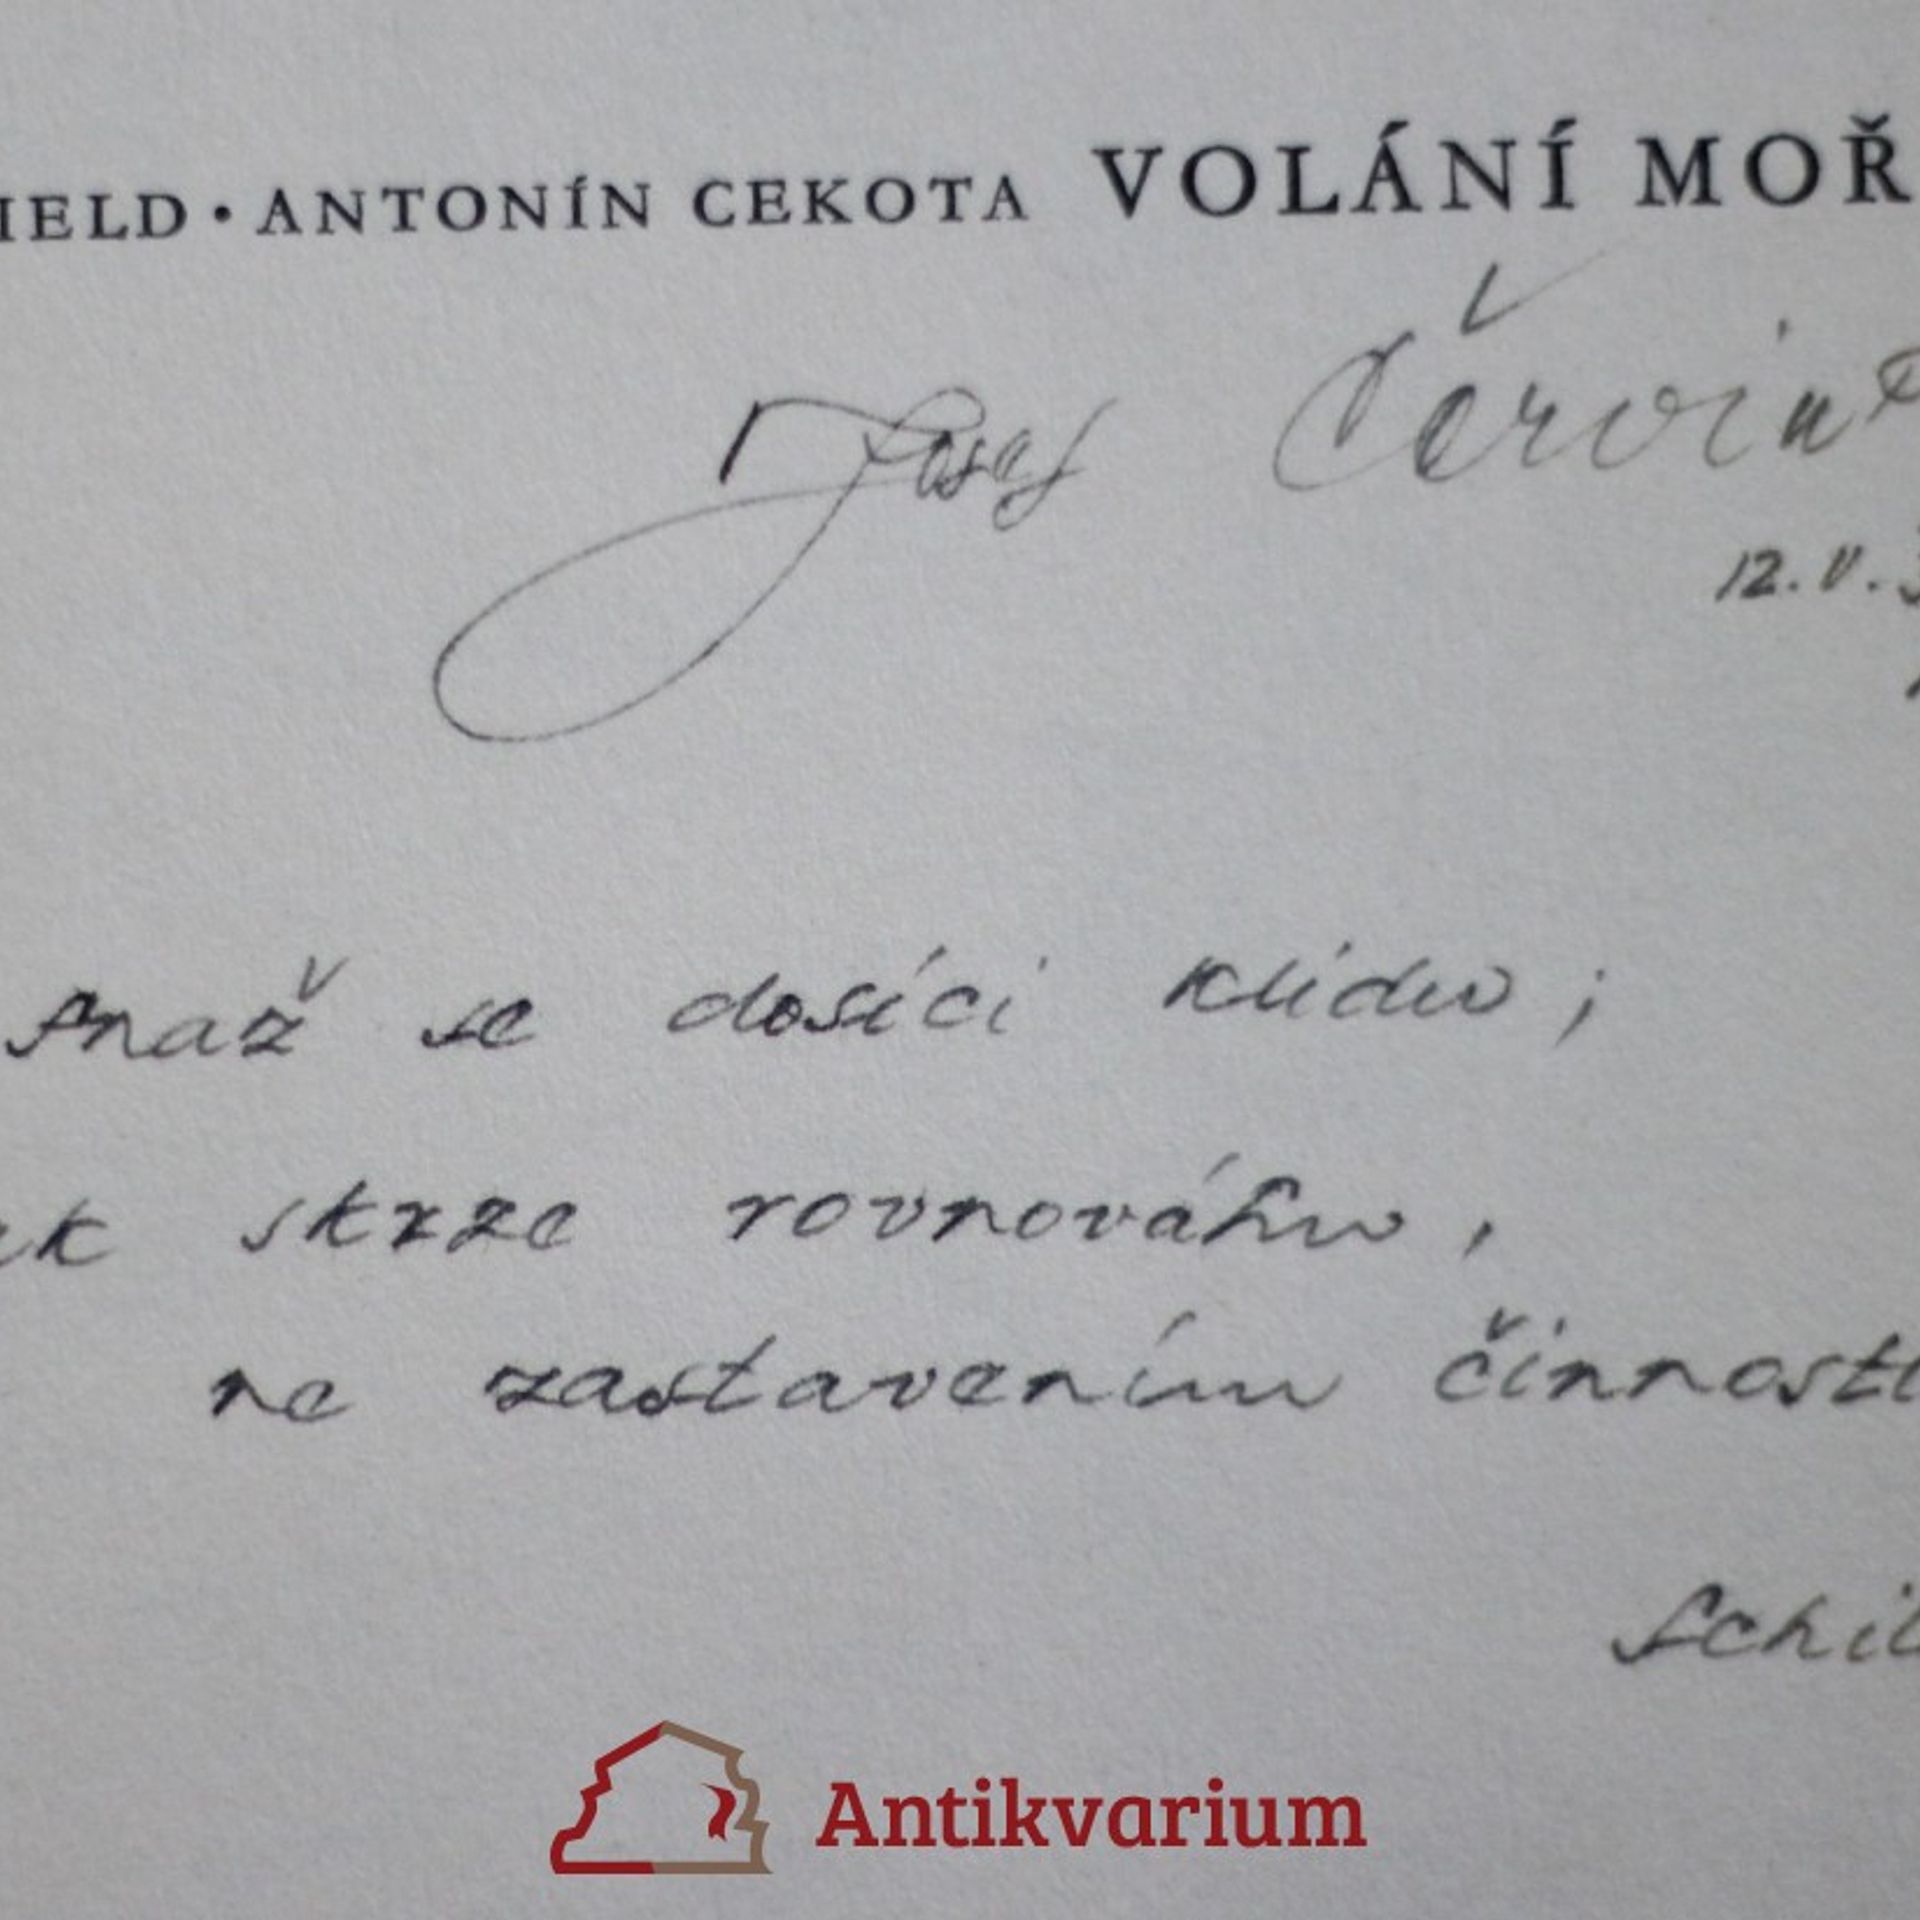 IELD · ANTONÍN CEKOTA VOLÁNÍ MOŘ
Josef Červin
12. V. 3
snaž se dosíci klidu ;
ak skrze rovnováhu ,
ne zastavením činnosti
Schil
Antikvarium